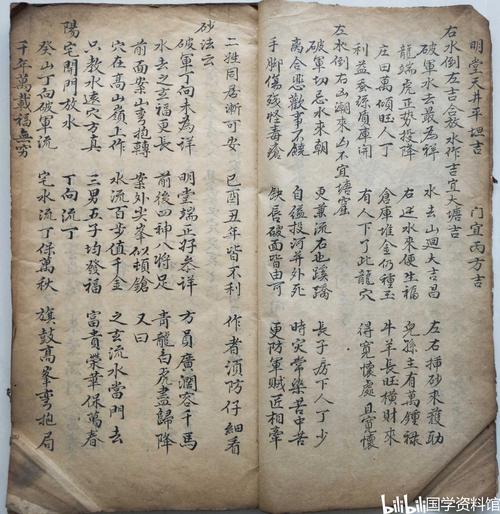 明堂天井平坦吉　門宜丙方吉
右水倒左吉合 水作吉宜大塘吉
破軍水去最為祥　水去山迴大吉昌　左右揷砂來護助
龍端虎正勢投降　右边水來便生福　兒孫主有萬鍾禄
庄田萬頃旺人丁　倉庫堆金仍種玉　牛羊長旺横財來
利益蚕絲 庫開　有人下了此龍穴　得寛懷處且寛懷
左水倒右山潮來山不宜塘窟
破軍切忌水來朝　更兼流右也蹊蹺　長子房下人丁少
離合悲歡事不饒　自 投河并外死　時災常樂苦中苦
手脚傷殘怪毒瘡　缺唇破面皆由可　更防軍賊匠相牽
二姓同居漸可安　己酉丑年皆不利　作者湏防仔細看
砂法云
破軍丁向未為祥　明堂端正好恭祥　方員廣濶容千馬
水去之玄福更長　前後四神八將足　青龍白虎盡歸降
前面案山弯抱轉　案外尖峯似頓鎗　又曰
穴在高山嶺上作　水流百步值千金　之玄流水當門去
只教水遠穴方真　三男五子均發福　富貴榮華保萬春
陽宅開門放水　丁向流丁
癸山丁向破軍流　宅水流丁保萬秋　旗鼓高峯弯抱局
千年萬載福無穷
bilibili 国学资料馆